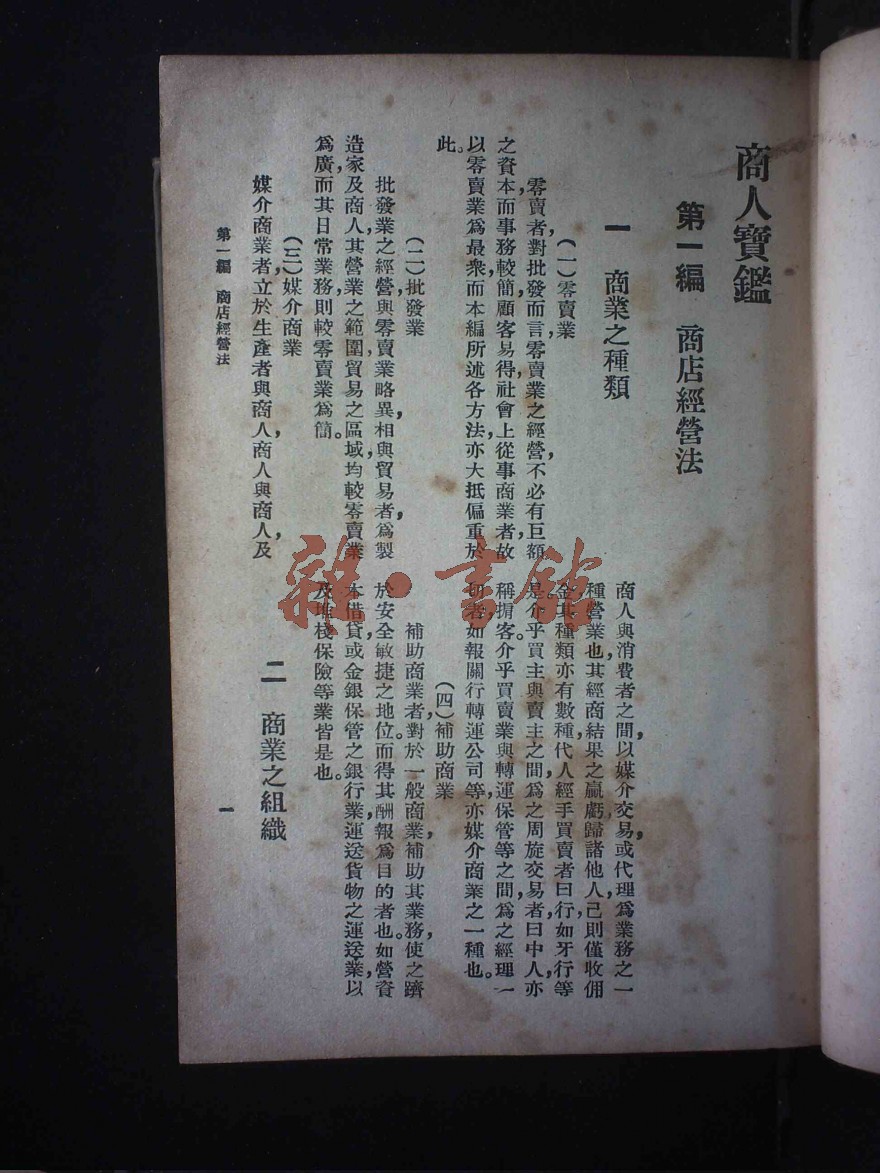 商人寶鑑
第一編　商店經營法
一　商業之種類
(一)零賣業
零賣者對批發而言零賣業之經營不必有巨額
之資本而事務較簡顧客易得社會上從事商業者故
以零賣業爲最衆而本編所述各方法亦大抵偏重於
此。
(二)批發業
批發業之經營與零賣業略異相與貿易者爲製
造家及商人其營業之範圍貿易之區域均較零賣業
爲廣而其日常業務則較零賣業爲簡。
(三)媒介商業
媒介商業者立於生產者與商人商人與商人及
商人與消費者之間以媒介交易或代理爲業務之一
種營業也其經商結果之贏虧歸諸他人己則僅收佣
金其種類亦有數種代人經手買賣者曰行如牙行等
是介乎買主與賣主之間爲之周旋交易者曰中人亦
稱掮客。介乎買賣業與轉運保管等之間爲之經理一
切者如報關行轉運公司等亦媒介商業之一種也。
(四)補助商業
補助商業者對於一般商業補助其業務使之躋
於安全敏捷之地位而得其酬報爲目的者也。如營資
本借貸或金銀保管之銀行業運送貨物之運送業以
及堆棧保險等業皆是也。
二　商業之組織
第一編　商店經營法
一
雜·書館